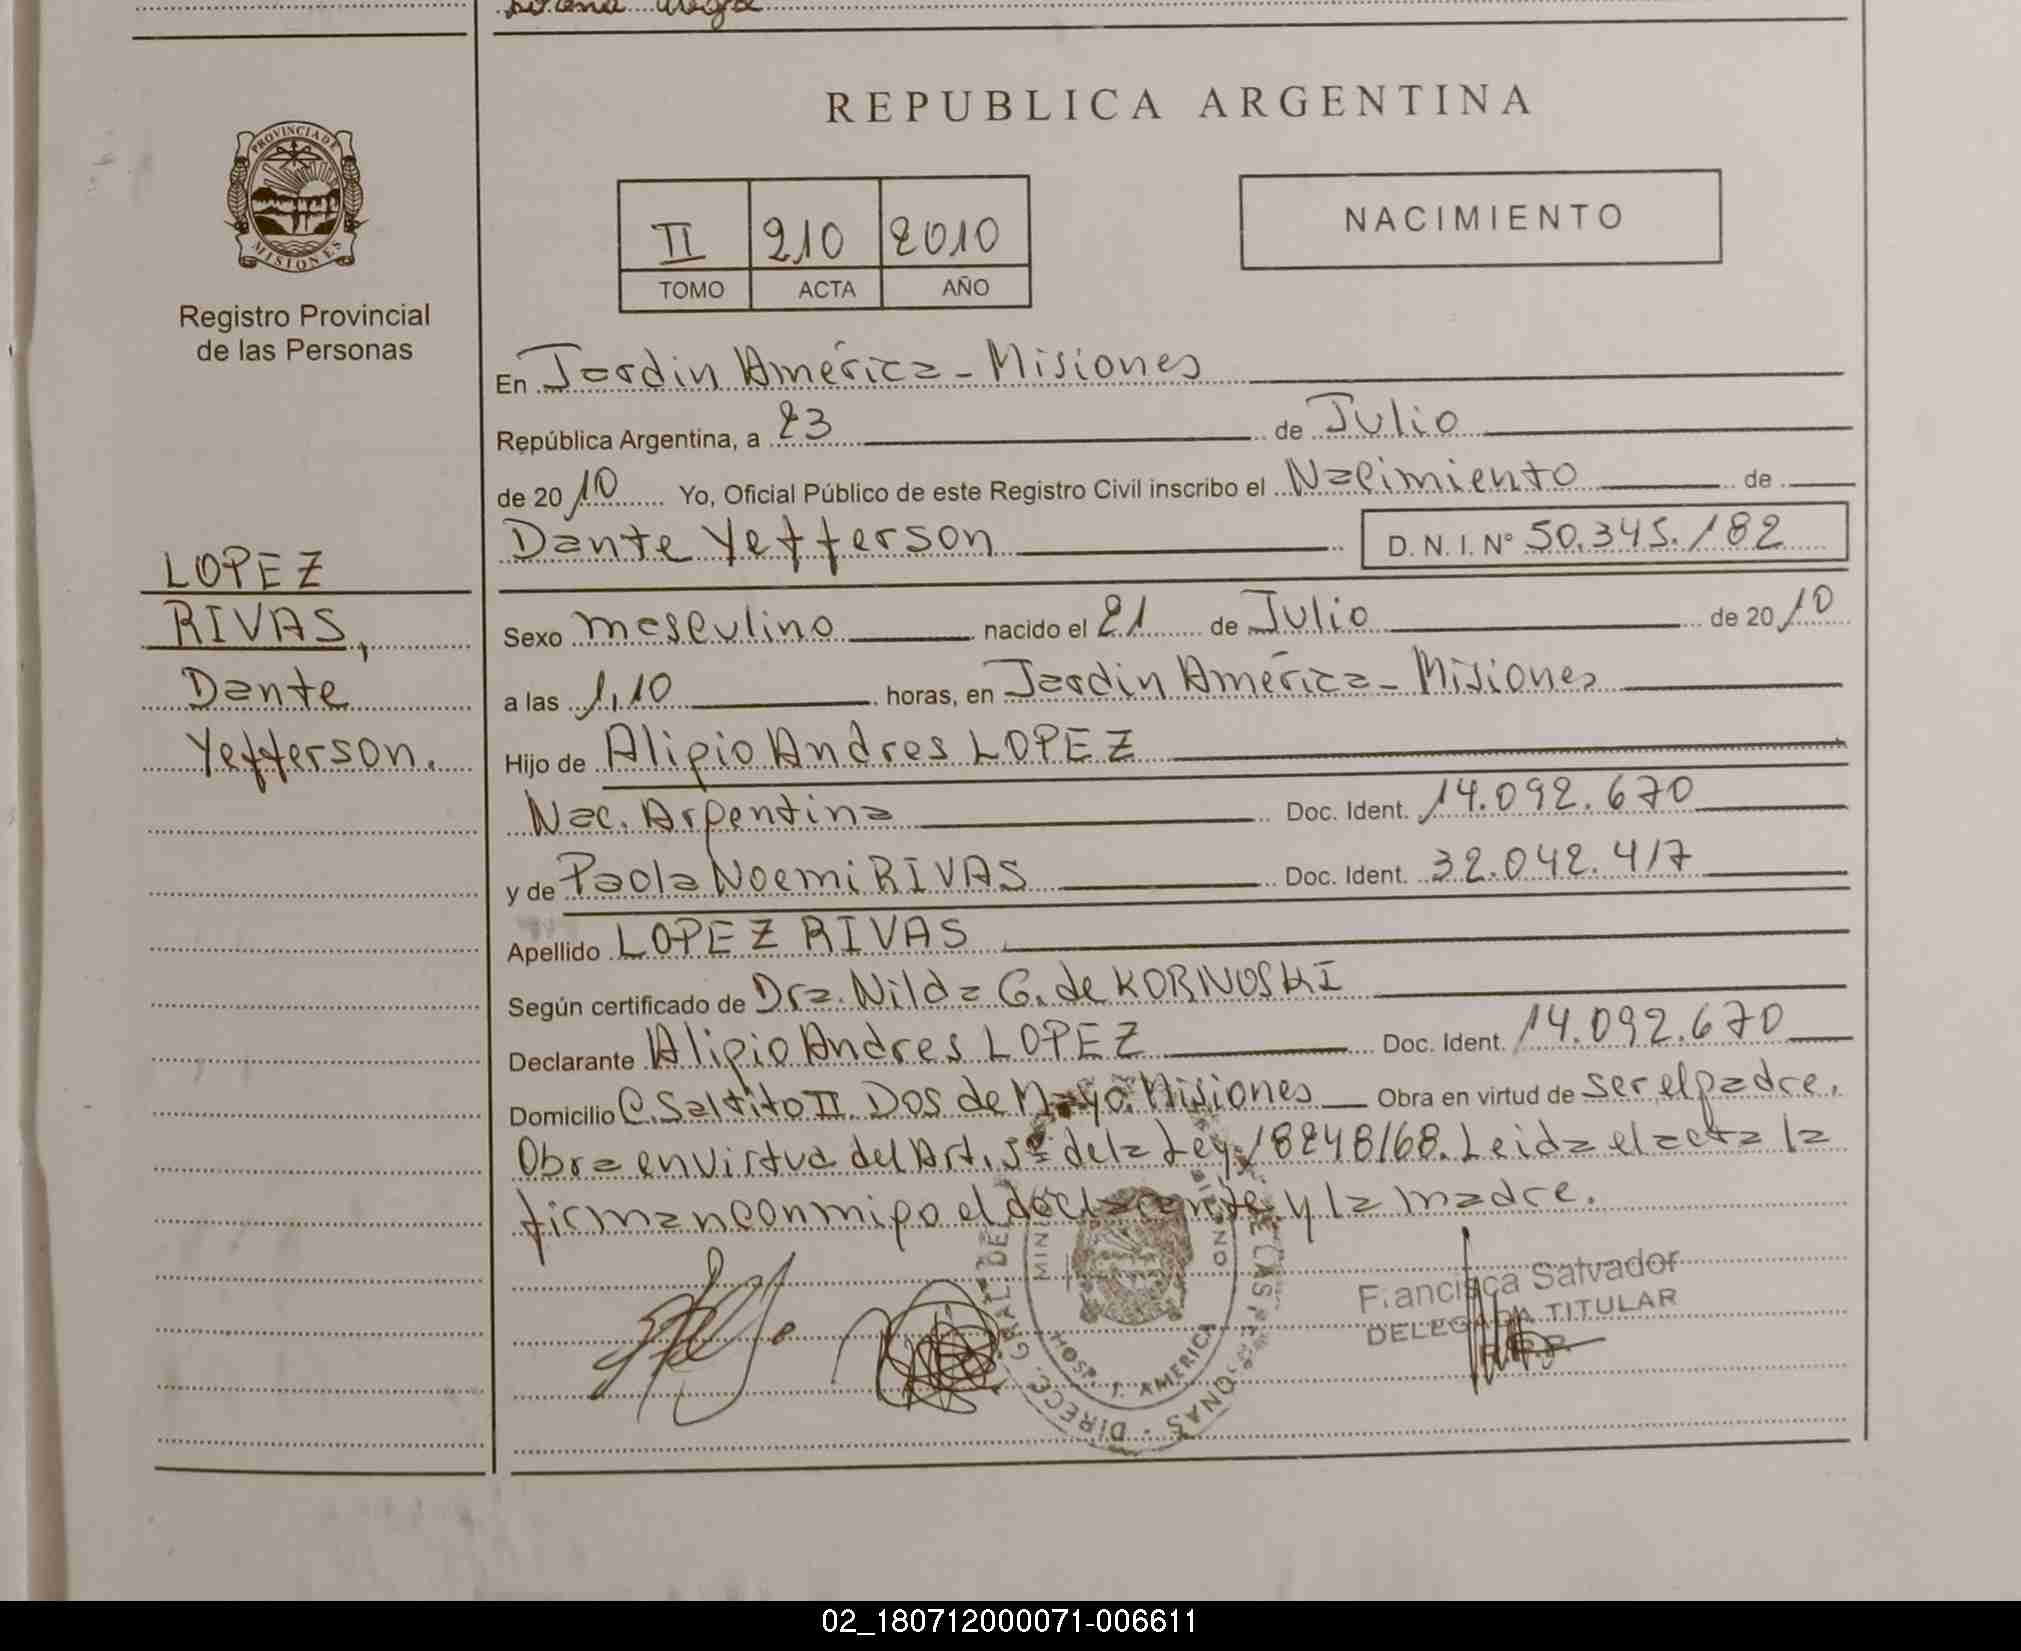 REPUBLICA ARGENTINA
PROVINCIA DE
MISIONES
Registro Provincial
de las Personas
II 210 2010
TOMO ACTA AÑO
NACIMIENTO
En Jardin América - Misiones
República Argentina, a 23 de Julio
de 2010 Yo, Oficial Público de este Registro Civil inscribo el Nacimiento de
Dante Yefferson D. N. I. Nº 50.345.182
LOPEZ
RIVAS,
Dante
Yefferson.
Sexo masculino nacido el 21 de Julio de 2010
a las 1,10 horas, en Jardin América - Misiones
Hijo de Alipio Andres LOPEZ
Nac. Argentina Doc. Ident. 14.092.670
y de Paola Noemi RIVAS Doc. Ident. 32.042.417
Apellido LOPEZ RIVAS
Según certificado de Dra. Nilda G. de KORNOSKI
Declarante Alipio Andres LOPEZ Doc. Ident. 14.092.670
Domicilio C. Saltito II. Dos de Mayo. Misiones Obra en virtud de ser el padre.
Obra en virtud del Art. 5º de la Ley 18248/68. Leida el acta la
firman conmigo el declarante y la madre.
Francisca Salvador
DELEGADA TITULAR
R.P.P.
DIRECC. GRAL. DE
HOSP. J. AMERICA
02_180712000071-006611